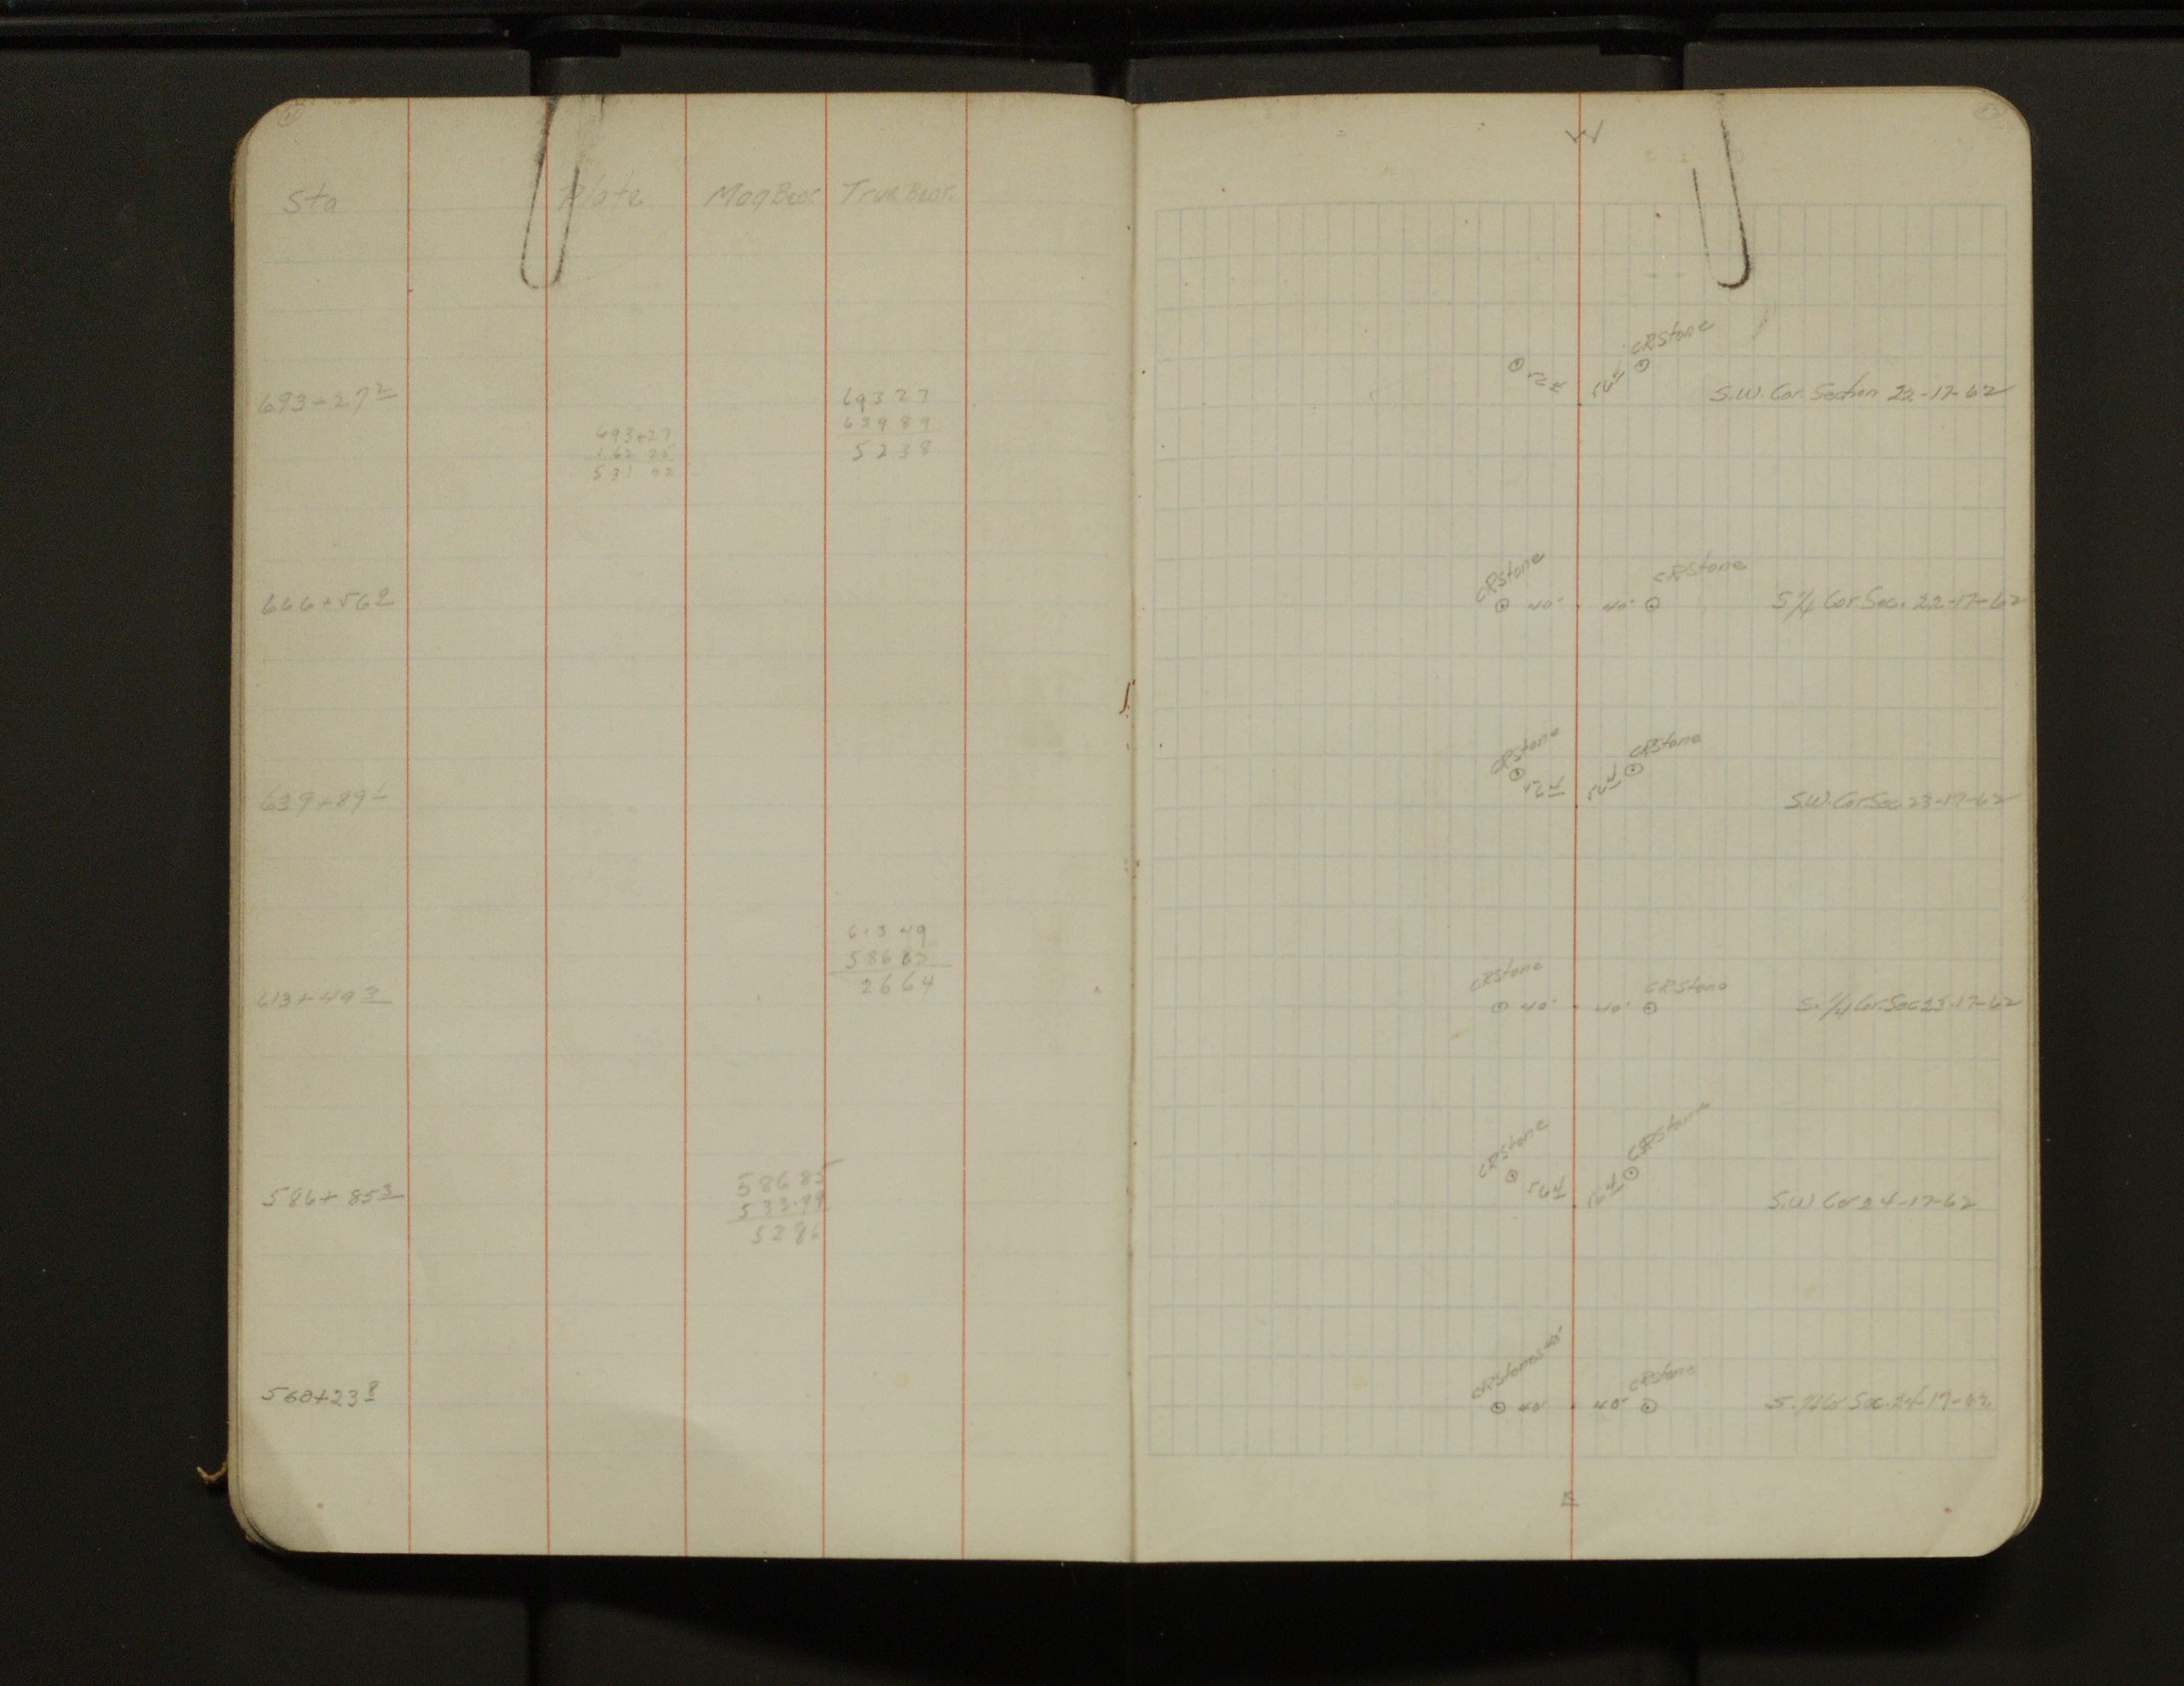 Sta Plate Mag Bear. True Bear.
693+27²
69327
63989
5238
693+27
162 25
531 02
666+56⁰
639+89¹
61349
58685
2664
613+49³
586+85³
58685
533.99
5286
560+23⁸
W
CRStone
S.W. Cor. Section 22-17-62
CRStone CRStone
40' 40' S.¼ Cor. Sec. 22-17-62
CRStone CRStone
S.W. Cor. Sec. 23-17-62
CRStone CRStone
40' 40' S. ¼ Cor. Sec 23-17-62
CRStone CRStone
56⁴ 56⁴
S.W Cor 24-17-62
CRStone
40' 40' S. ¼ Cor Sec. 24-17-62
E